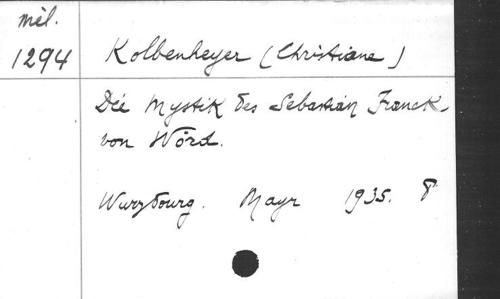 Mél.
1294 Kolbenheyer (Christiane)
Die Mystik des Sebastian Franck
von Wörd.
Wurzbourg. Mayr 1935. 8°